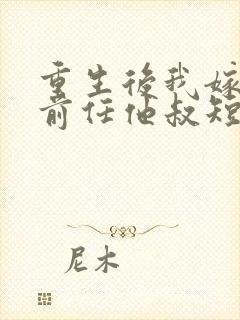 重生後我嫁
前任他叔短
尼木